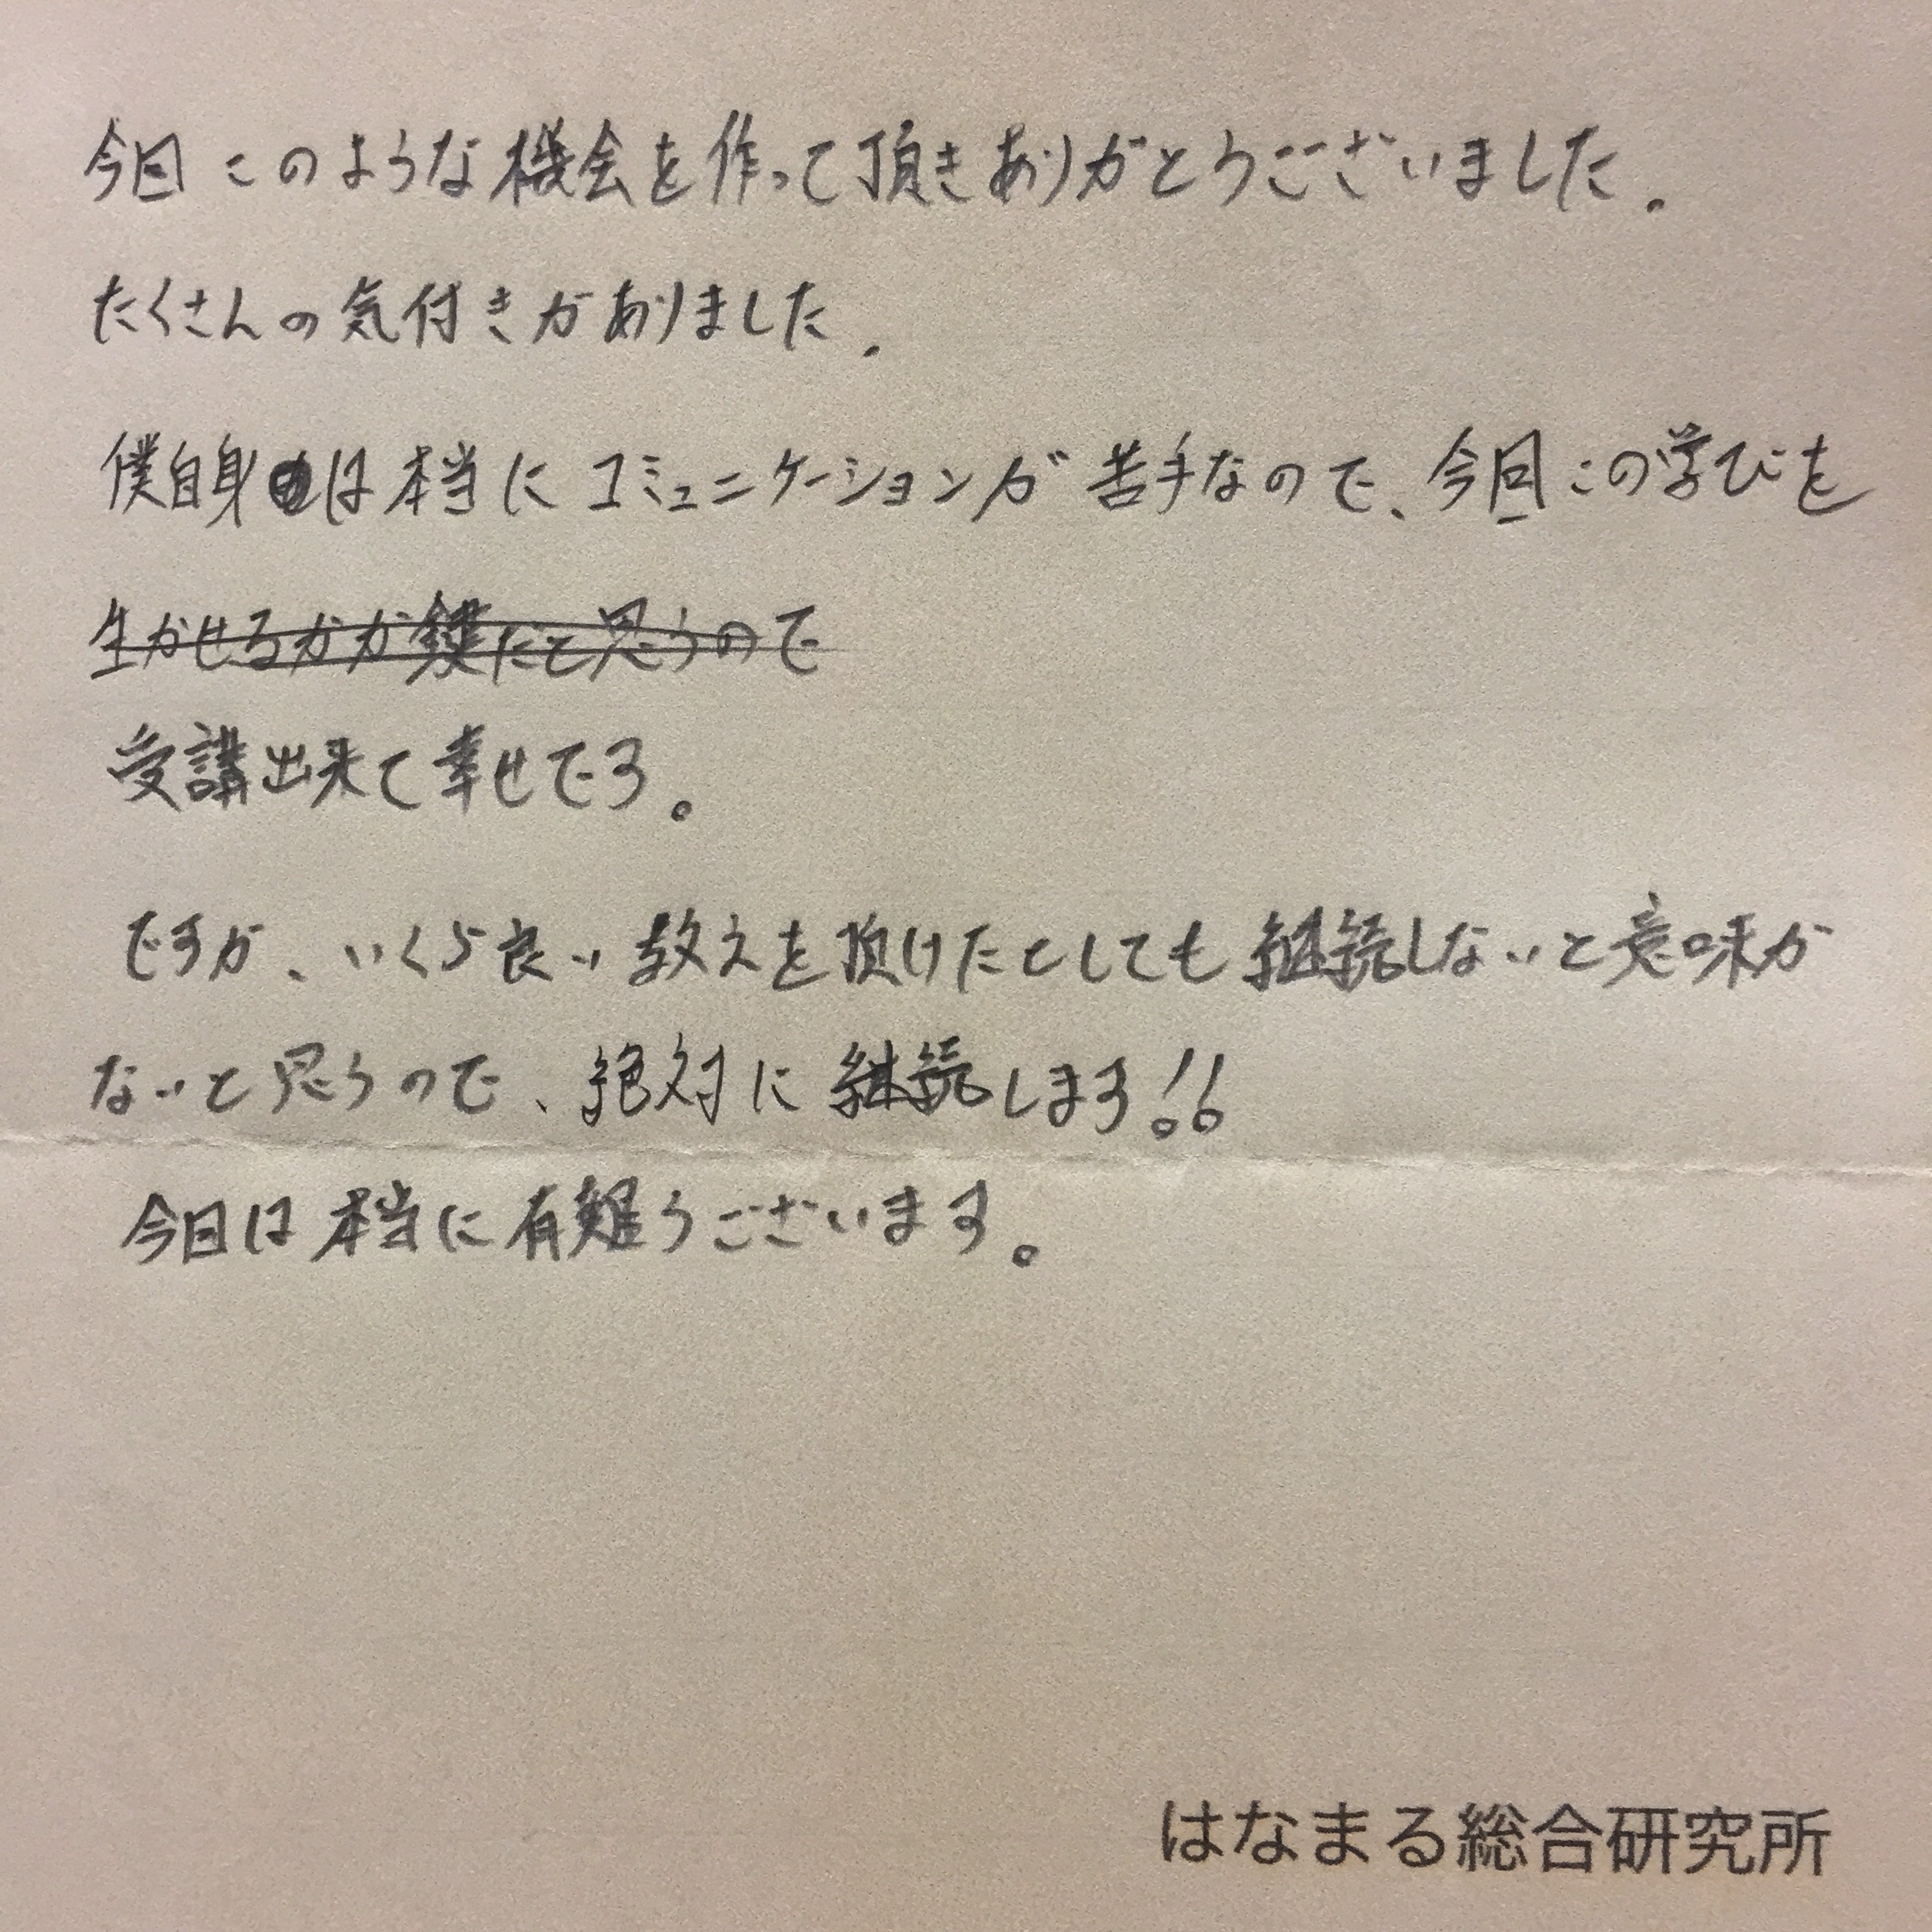 今回このような機会を作って頂きありがとうございました。
たくさんの気付きがありました。
僕自身は本当にコミュニケーションが苦手なので、今回この学びを
生かせるかが鍵だと思うので
受講出来て幸せです。
ですが、いくら良い教えを頂けたとしても継続しないと意味が
ないと思うので、絶対に継続します!!
今日は本当に有難うございます。
はなまる総合研究所